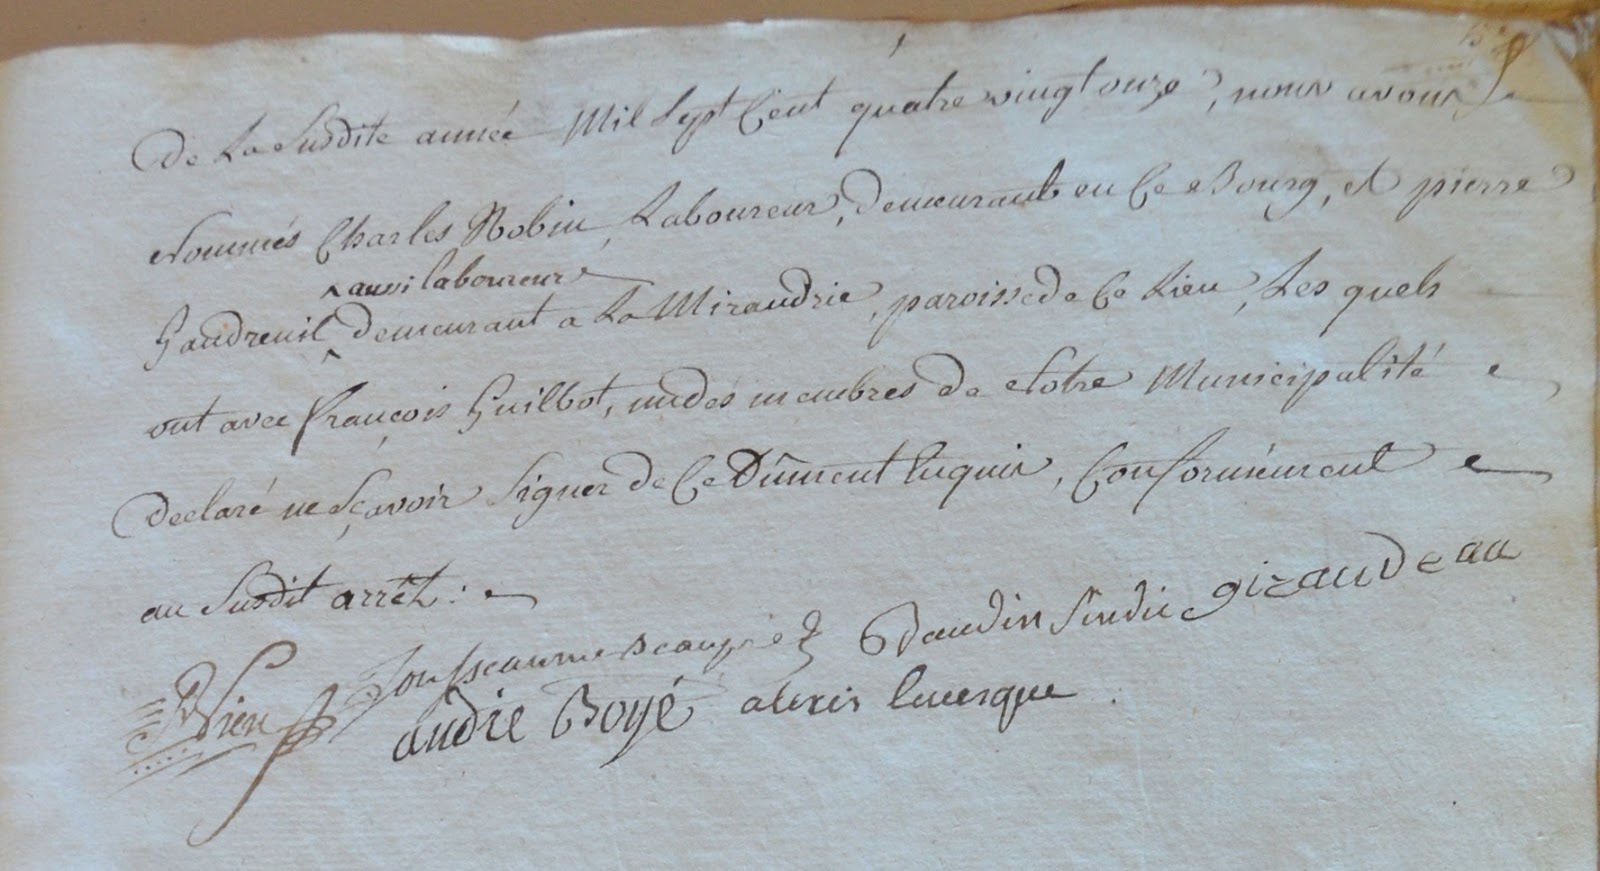 De La Susdite année Mil Sept Cent quatre vingt onze, nous avons
Nommés Charles Robin, Laboureur, demeurant en Ce Bourg, et pierre
aussi laboureur
Gaudreuil demeurant a La Miraudrie, paroisse de Ce Lieu, Les quels
ont avec François Guilbot, un des membres de Notre Municipalité
declaré ne sçavoir Signer de Ce Dûment Enquis, Conformément
au Susdit arrêt :
Jousseaume Beaupré Baudin Sindic giraudeau
andré Boyé alexis levesque